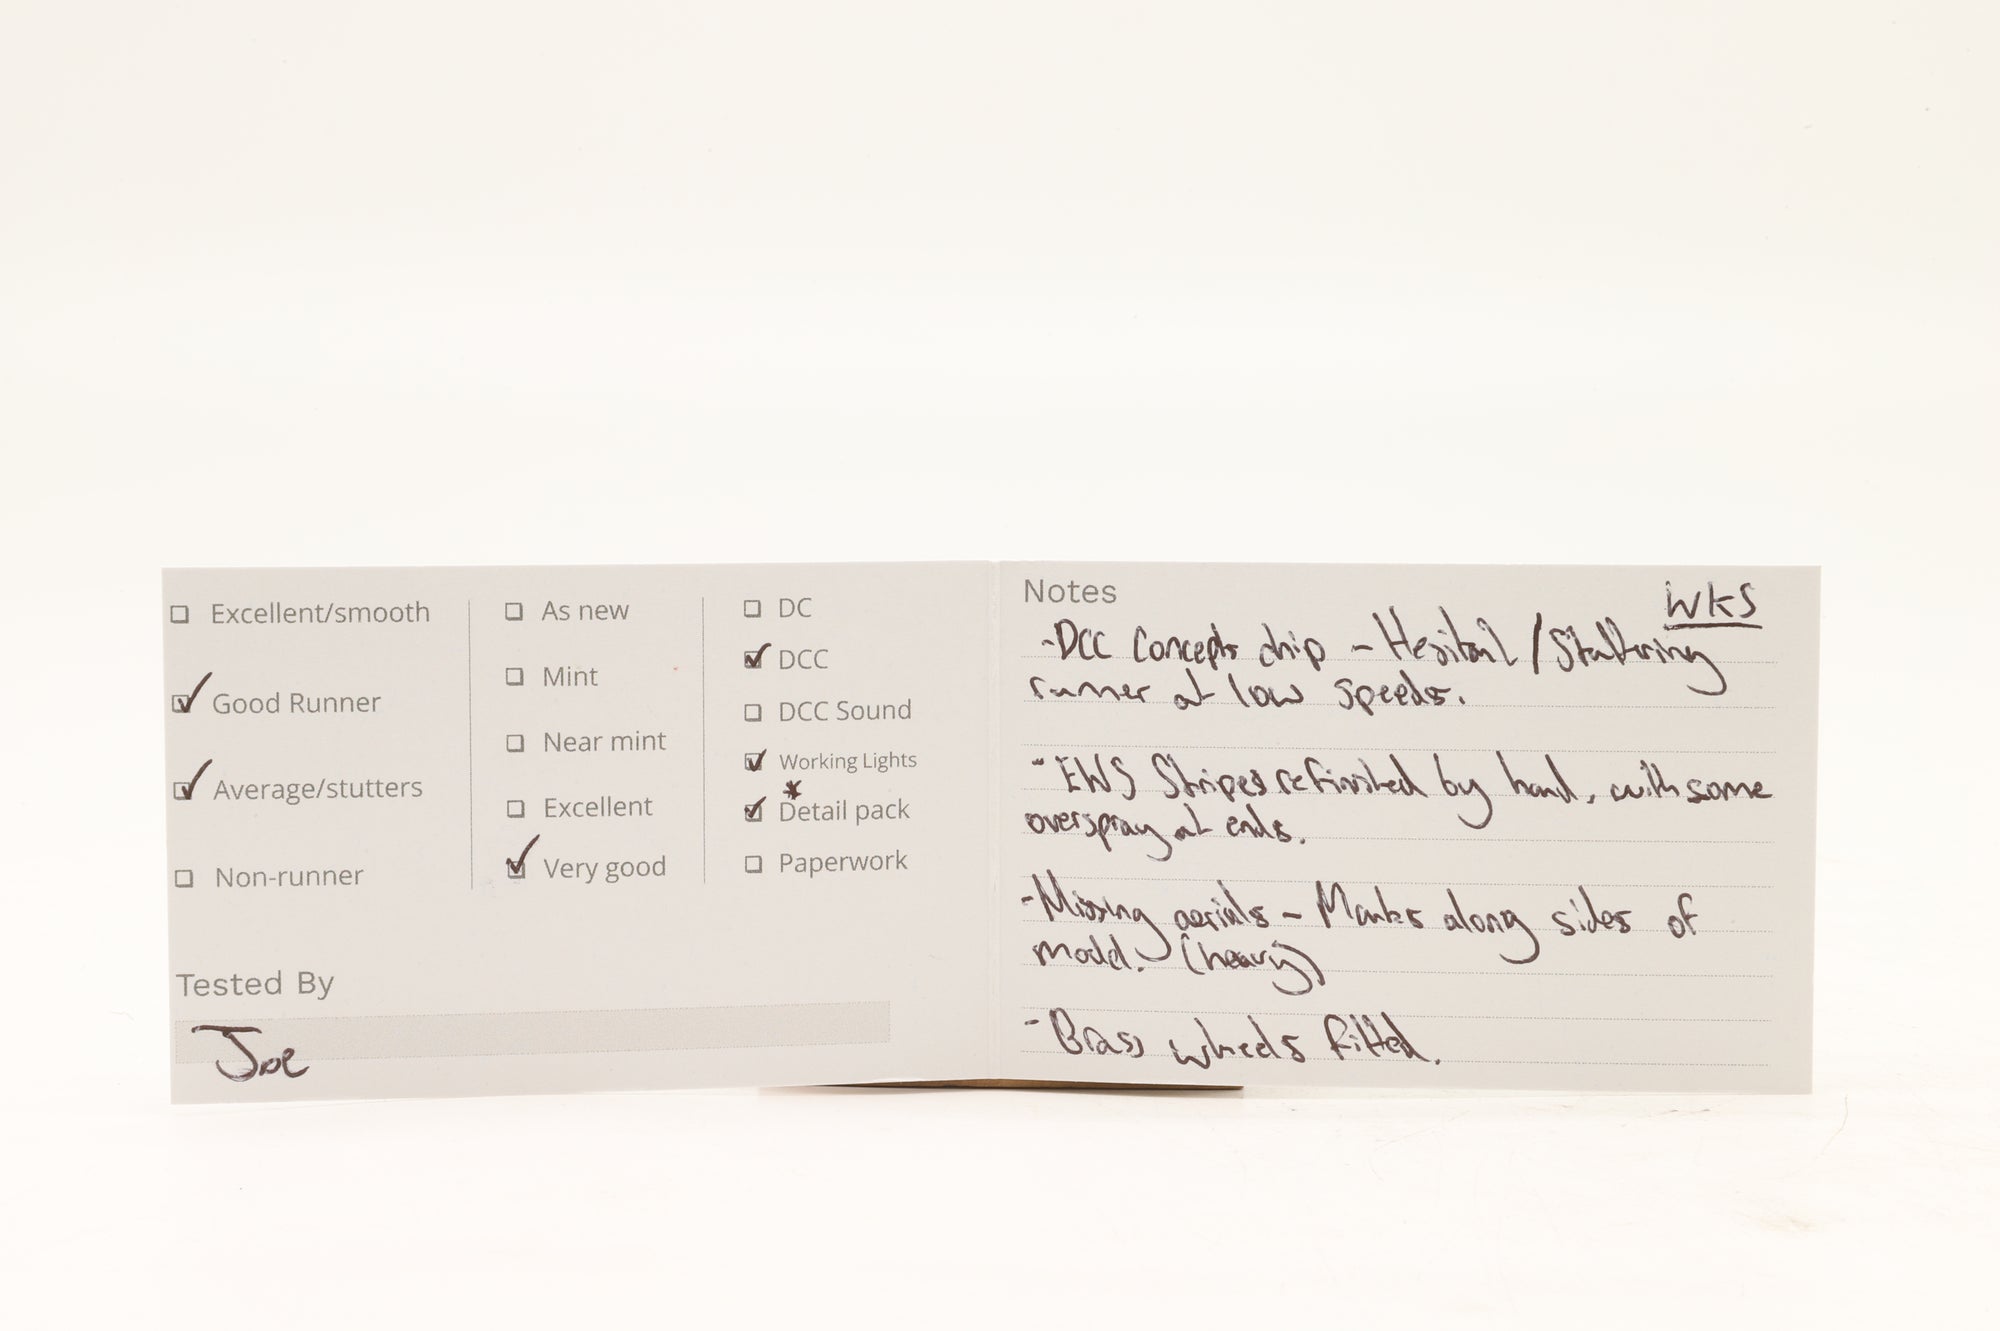 Excellent/smooth
Good Runner
Average/stutters
Non-runner
As new
Mint
Near mint
Excellent
Very good
DC
DCC
DCC Sound
Working Lights
*
Detail pack
Paperwork
Tested By
Joe
Notes
WKS
-DCC Concepts chip - Hesitant/Stuttering
runner at low speeds.
-EWS Stripes refinished by hand, with some
overspray at ends.
-Missing aerials - Marks along sides of
model. (heavy)
-Brass wheels fitted.